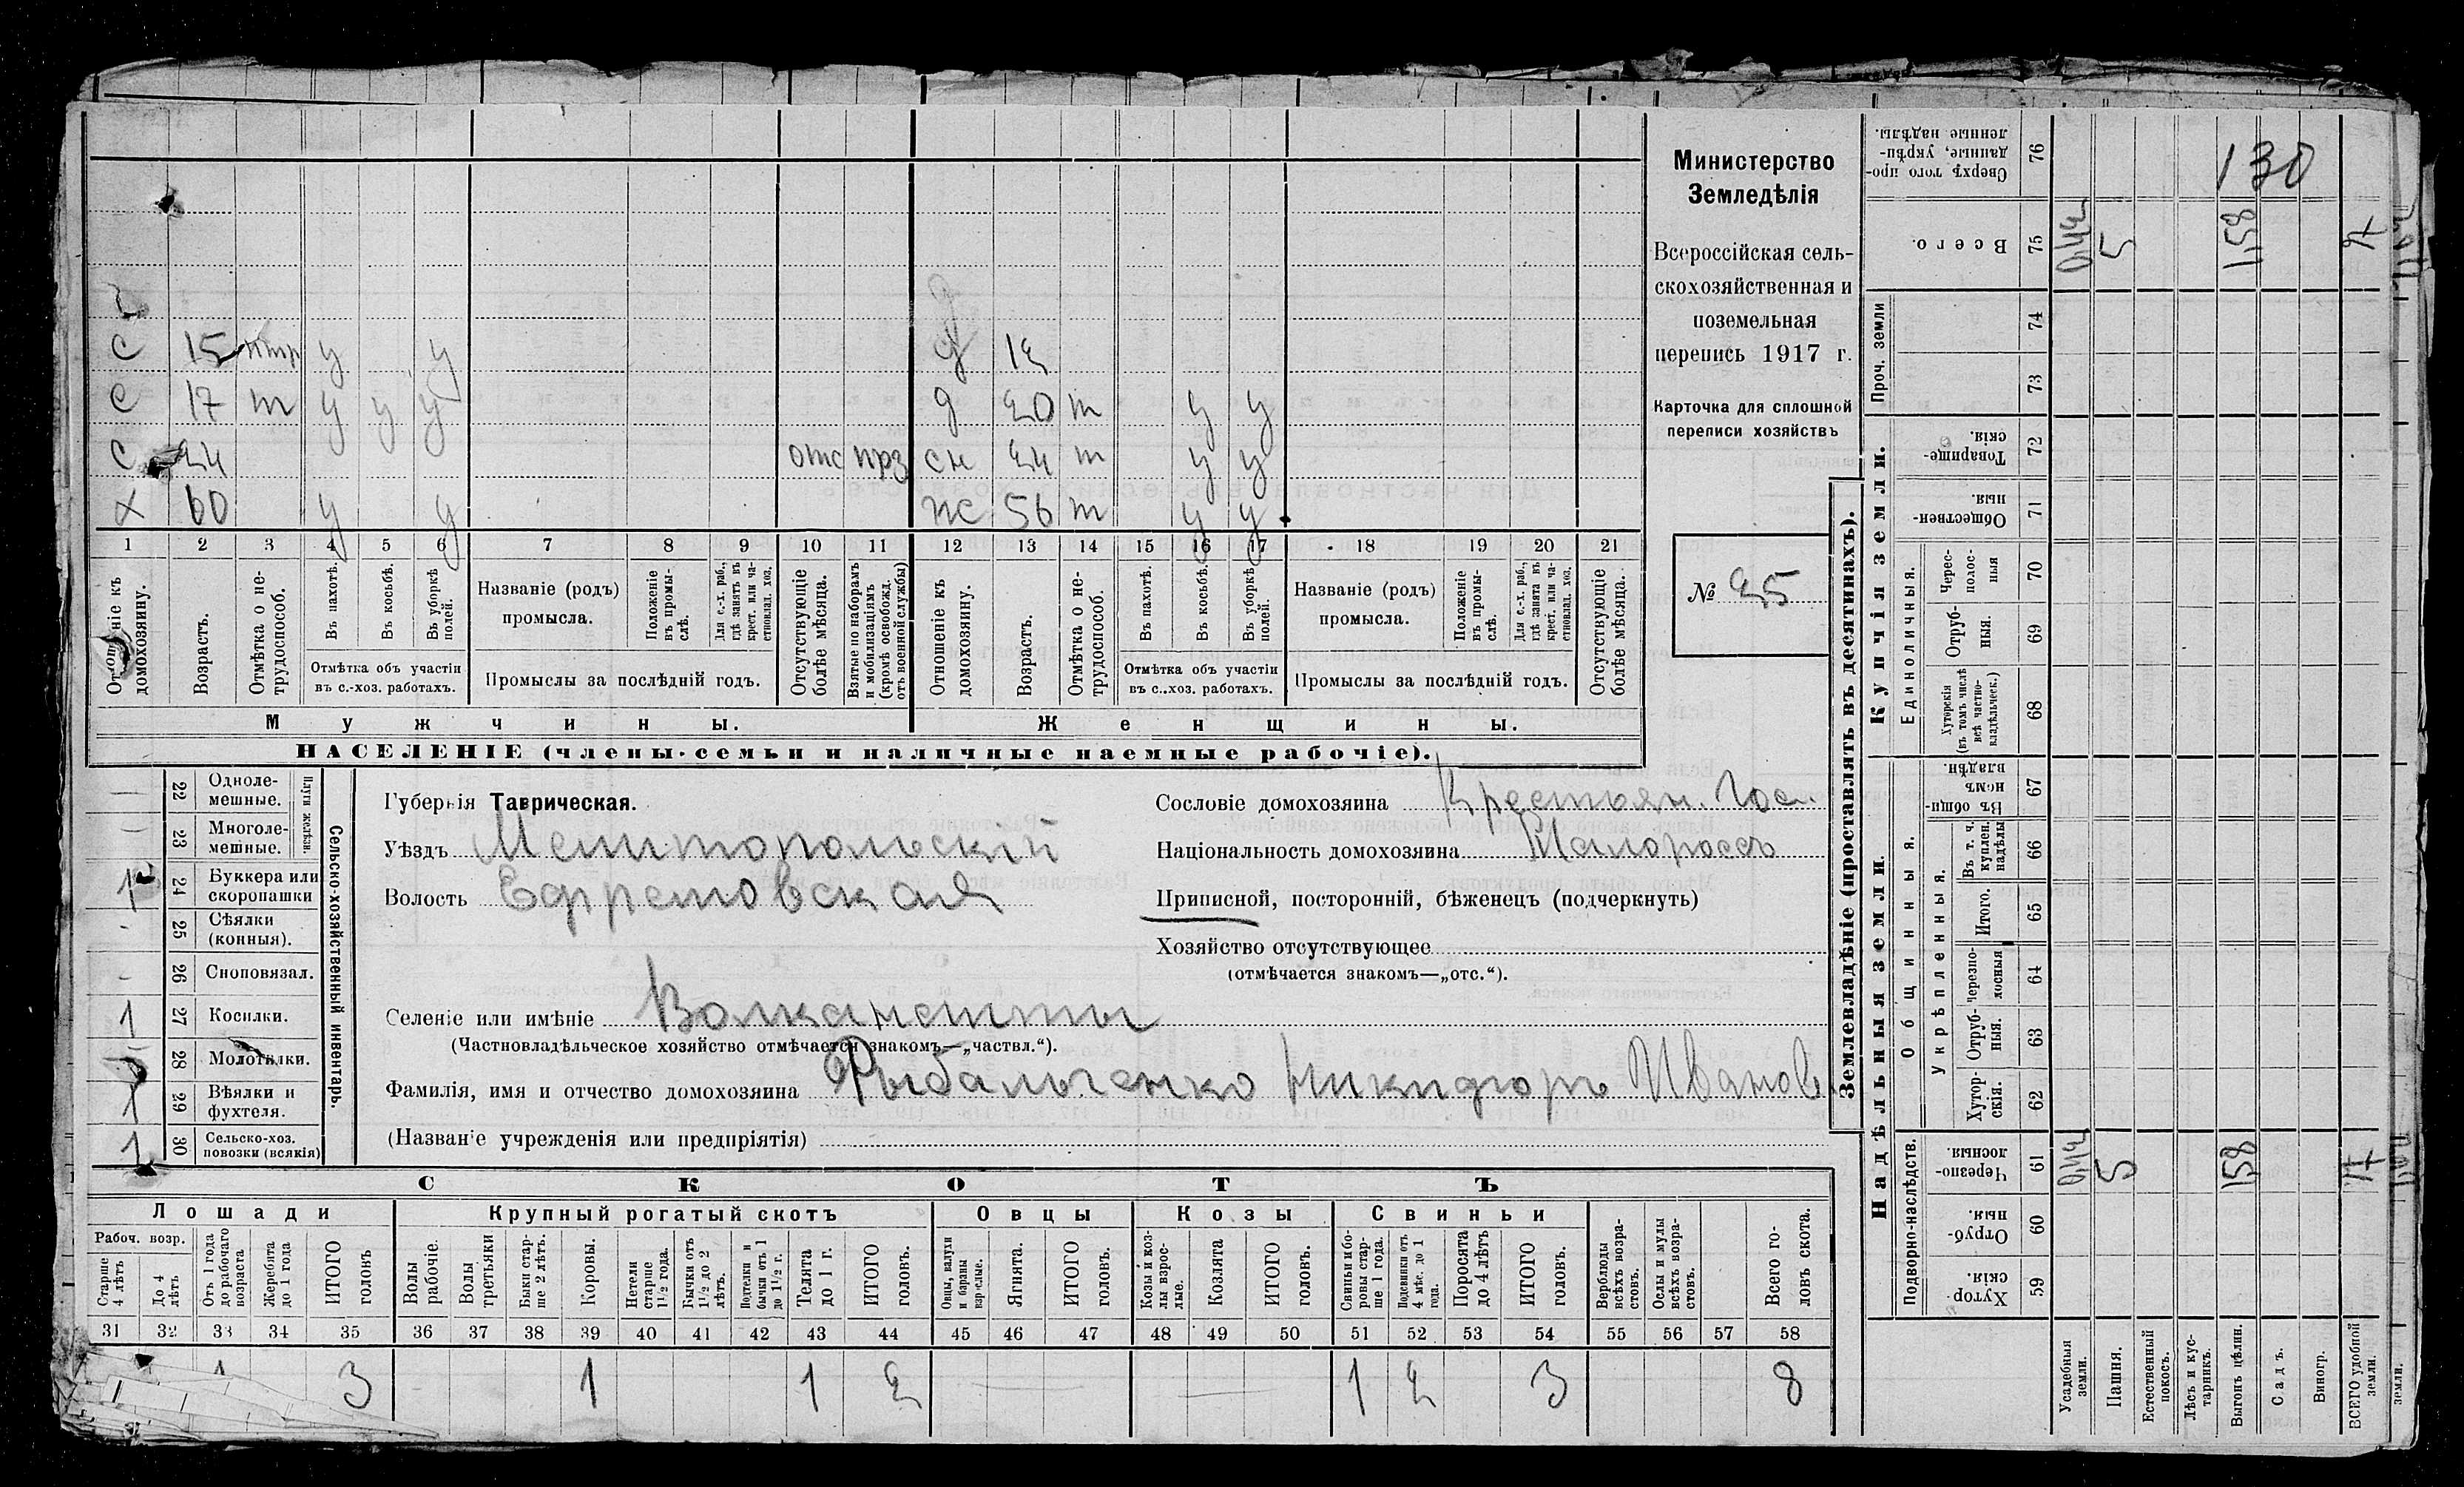 Министерство
Земледѣлія
Всероссійская сель-
скохозяйственная и
поземельная
перепись 1917 г.
Карточка для сплошной
переписи хозяйствъ
№ 25
С 15 птр у у
С 17 т у у у
С 24 отс прз
Х 60 у у
д 12
д 20 т у у
сн 24 т у у
ж 56 т у у
1 2 3 4 5 6 7 8 9 10 11 12 13 14 15 16 17 18 19 20 21
Отношеніе къ домохозяину.
Возрастъ.
Отмѣтка о не-трудоспособ.
Въ пахотѣ.
Въ косьбѣ.
Въ уборкѣ полей.
Отмѣтка объ участіи
въ с.-хоз. работахъ.
Названіе (родъ)
промысла.
Положеніе въ промы-слѣ.
Для с.-х. раб., гдѣ занятъ въ крест. или ча-стновлад. хоз.
Промыслы за послѣдній годъ.
Отсутствующіе болѣе мѣсяца.
Взятые по наборамъ и мобилизаціямъ (кромѣ освобожд. отъ военной службы)
Отношеніе къ домохозяину.
Возрастъ.
Отмѣтка о не-трудоспособ.
Въ пахотѣ.
Въ косьбѣ.
Въ уборкѣ полей.
Отмѣтка объ участіи
въ с.-хоз. работахъ.
Названіе (родъ)
промысла.
Положеніе въ промы-слѣ.
Для с.-х. раб., гдѣ занята въ крест. или ча-стновлад. хоз.
Промыслы за послѣдній годъ.
Отсутствующіе болѣе мѣсяца.
Мужчины. Женщины.
НАСЕЛЕНІЕ (члены семьи и наличные наемные рабочіе).
22 Одноле-мешные.
23 Многоле-мешные.
Плуги желѣзн.
1 24 Буккера или скоропашки
25 Сѣялки (конныя).
26 Сноповязал.
1 27 Косилки.
28 Молотилки.
1 29 Вѣялки и фухтеля.
1 30 Сельско-хоз. повозки (всякія)
Сельско-хозяйственный инвентарь.
Губернія Таврическая.
Уѣздъ Мелитопольскій
Волость Ефремовская
Селеніе или имѣніе Волканешты
(Частновладѣльческое хозяйство отмѣчается знакомъ—„частвл.“).
Фамилія, имя и отчество домохозяина Рыбальченко Никифоръ Иванов
(Названіе учрежденія или предпріятія)
Сословіе домохозяина Крестьян. Гос.
Національность домохозяина Малороссъ
Приписной, посторонній, бѣженецъ (подчеркнуть)
Хозяйство отсутствующее
(отмѣчается знакомъ—„отс.“).
СКОТЪ
Лошади Крупный рогатый скотъ Овцы Козы Свиньи
Рабоч. возр.
Старше 4 лѣтъ
До 4 лѣтъ
Отъ 1 года до рабочаго возраста
Жеребята до 1 года
ИТОГО головъ
Волы рабочіе.
Волы третьяки
Быки стар-ше 2 лѣтъ.
Коровы.
Нетели старше 1½ года.
Бычки отъ 1½ до 2 лѣтъ.
Подтелки и бычки отъ 1 до 1½ г.
Телята до 1 г.
ИТОГО головъ.
Овцы, валухи и бараны взрослые.
Ягнята.
ИТОГО головъ.
Козы и коз-лы взрос-лые.
Козлята
ИТОГО головъ.
Свиньи и бо-ровы стар-ше 1 года.
Подсвинки отъ 4 мѣс. до 1 года.
Поросята до 4 лѣтъ
ИТОГО головъ.
Верблюды всѣхъ возра-стовъ.
Ослы и мулы всѣхъ возра-стовъ.
Всего го-ловъ скота.
31 32 33 34 35 36 37 38 39 40 41 42 43 44 45 46 47 48 49 50 51 52 53 54 55 56 57 58
1 3 1 1 2 1 2 3 8
Землевладѣніе (проставлять въ десятинахъ).
Надѣльныя земли. Купчія земли. Проч. земли
Подворно-наслѣдств.
Общинныя.
Укрѣпленныя.
Единоличныя.
Хутор-скія. 59
Отруб-ныя. 60
Черезпо-лосныя. 61
Хутор-скія. 62
Отруб-ныя. 63
Черезпо-лосныя 64
Итого. 65
Въ т. ч. куплен. надѣлы 66
Въ общин-номъ владѣн. 67
Хуторскія (въ томъ числѣ всѣ частно-владѣльческ.) 68
Отруб-ныя. 69
Черес-полос-ныя 70
Обществен-ныя. 71
Товарище-скія. 72
73
74
Всего. 75
Сверхъ того про-данные, укрѣп-ленные надѣлы. 76
Усадебныя земли.
Пашня.
Естественный покосъ.
Лѣсъ и кус-тарникъ.
Выгонъ цѣлин.
Садъ.
Виногр.
ВСЕГО удобной земли.
земли.
5 1,58
5 1,58
130